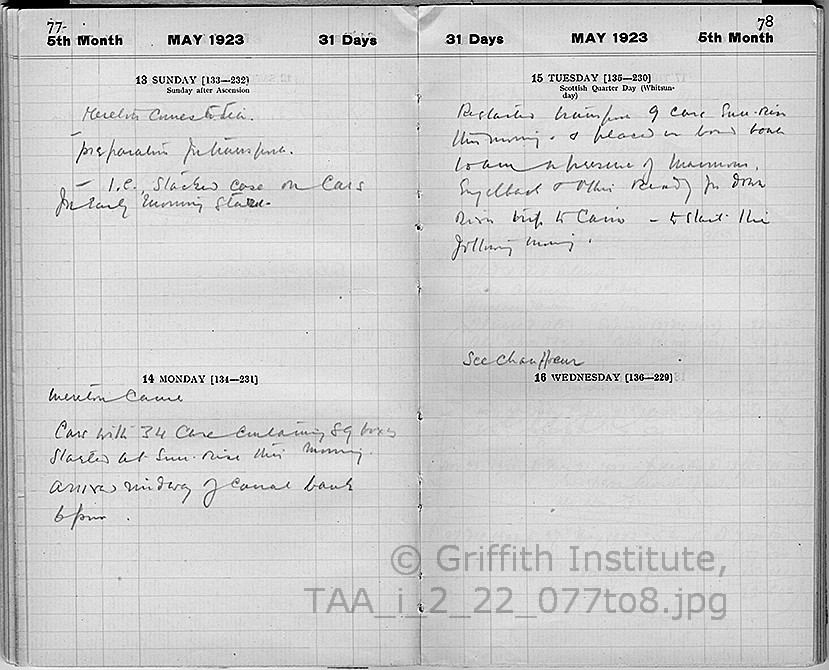 77-
5th Month MAY 1923 31 Days
13 SUNDAY [133—232]
Sunday after Ascension
Merton comes to tea.
— preparation for transport.
— I.C. Stacked case on Cars
for Early Morning Start.
14 MONDAY [134—231]
Merton Came
Cars with 34 Case containing 89 boxes
Started at Sun-rise this Morning.
arrived midway of Canal bank
6 pm.
78
31 Days MAY 1923 5th Month
15 TUESDAY [135—230]
Scottish Quarter Day (Whitsun-
day)
Restarted transport of cars Sun-rise
this morning - & placed on board boat
10 am in presence of Mamours.
Engelbach & Others Ready for down
River trip to Cairo — to start the
following morning.
See Chauffeur
16 WEDNESDAY [136—229]
© Griffith Institute,
TAA_i_2_22_077to8.jpg